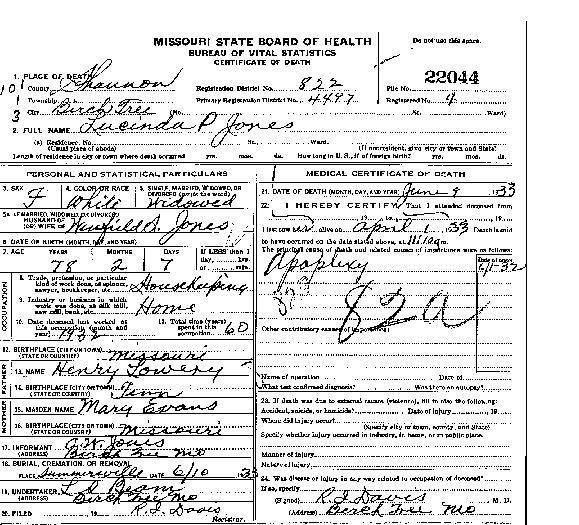 MISSOURI STATE BOARD OF HEALTH
BUREAU OF VITAL STATISTICS
CERTIFICATE OF DEATH
Do not use this space.
22044
1. PLACE OF DEATH
County Shannon Registration District No. 822 File No.
Township Primary Registration District No. 4497 Registered No. 9
City Birch Tree (No. St. Ward)
2. FULL NAME Lucinda P Jones
(a) Residence, No. St. Ward.
(Usual place of abode) (If nonresident, give city or town and State)
Length of residence in city or town where death occurred yrs. mos. ds. How long in U. S., if of foreign birth? yrs. mos. ds.
PERSONAL AND STATISTICAL PARTICULARS
3. SEX F
4. COLOR OR RACE White
5. SINGLE, MARRIED, WIDOWED, OR DIVORCED Widowed
5A. IF MARRIED, WIDOWED, OR DIVORCED
HUSBAND OF
(OR) WIFE OF Jones
6. DATE OF BIRTH (MONTH, DAY, AND YEAR)
7. AGE YEARS 78 MONTHS 2 DAYS 7 If LESS than 1 day, hrs. or min.
OCCUPATION
8. Trade, profession, or particular kind of work done, as spinner, sawyer, bookkeeper, etc. Housekeeping
9. Industry or business in which work was done, as silk mill, saw mill, bank, etc. Home
10. Date deceased last worked at this occupation (month and year) 1932
11. Total time (years) spent in this occupation 60
12. BIRTHPLACE (CITY OR TOWN)
(STATE OR COUNTRY) Missouri
FATHER
13. NAME Henry Lowery
14. BIRTHPLACE (CITY OR TOWN)
(STATE OR COUNTRY) Tenn
MOTHER
15. MAIDEN NAME Mary Evans
16. BIRTHPLACE (CITY OR TOWN)
(STATE OR COUNTRY) Missouri
17. INFORMANT Jones
(ADDRESS) Birch Tree Mo
18. BURIAL, CREMATION, OR REMOVAL
PLACE Summersville DATE 6/10 33
19. UNDERTAKER
(ADDRESS) Birch Tree Mo
20. FILED , 19 R. I. Davis
Registrar.
MEDICAL CERTIFICATE OF DEATH
21. DATE OF DEATH (MONTH, DAY, AND YEAR) June 9 1933
22. I HEREBY CERTIFY, That I attended deceased from
, 19 , to , 19
I last saw alive on April 1 33 Death is said
to have occurred on the date stated above, at m.
The principal cause of death and related causes of importance were as follows:
Date of onset
Apoplexy
82a
Other contributory causes of importance:
Name of operation Date of
What test confirmed diagnosis? Was there an autopsy?
23. If death was due to external causes (violence), fill in also the following:
Accident, suicide, or homicide? Date of injury , 19
Where did injury occur?
(Specify city or town, county, and State)
Specify whether injury occurred in industry, in home, or in public place.
Manner of injury
Nature of injury
24. Was disease or injury in any way related to occupation of deceased?
If so, specify
(Signed) R. I. Davis M. D.
(Address) Birch Tree Mo